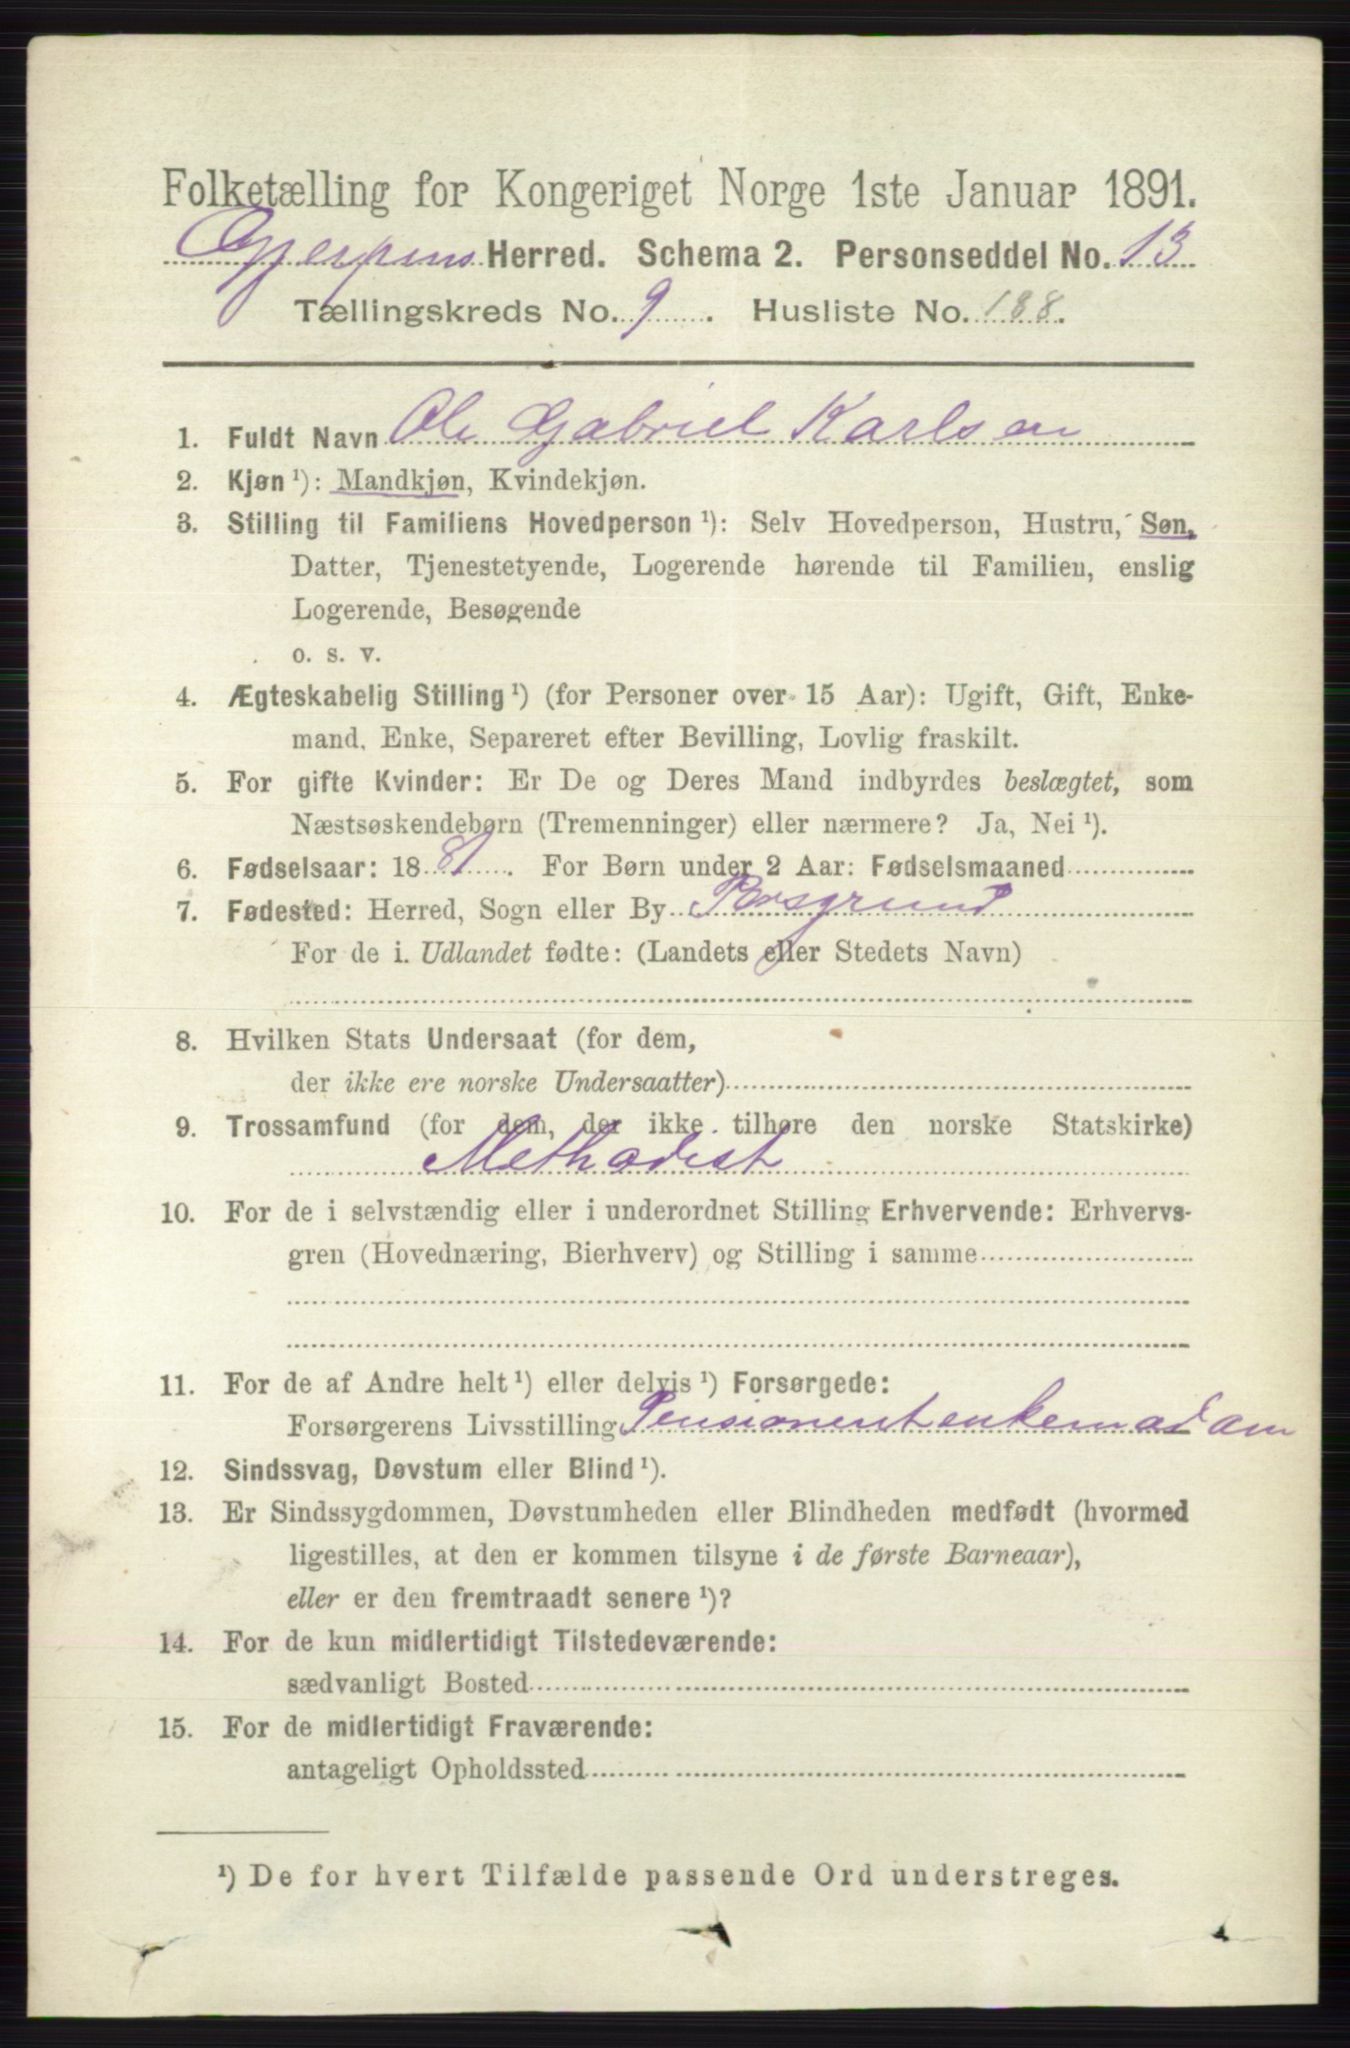 Folketælling for Kongeriget Norge 1ste Januar 1891.
Gjerpens Herred. Schema 2. Personseddel No. 13
Tællingskreds No. 9. Husliste No. 188.
1. Fuldt Navn Ole Gabriel Karlsen
2. Kjøn ¹): Mandkjøn, Kvindekjøn.
3. Stilling til Familiens Hovedperson ¹): Selv Hovedperson, Hustru, Søn,
Datter, Tjenestetyende, Logerende hørende til Familien, enslig
Logerende, Besøgende
o. s. v.
4. Ægteskabelig Stilling ¹) (for Personer over 15 Aar): Ugift, Gift, Enke-
mand, Enke, Separeret efter Bevilling, Lovlig fraskilt.
5. For gifte Kvinder: Er De og Deres Mand indbyrdes beslægtet, som
Næstsøskendebørn (Tremenninger) eller nærmere? Ja, Nei ¹).
6. Fødselsaar: 1881. For Børn under 2 Aar: Fødselsmaaned
7. Fødested: Herred, Sogn eller By Porsgrund
For de i Udlandet fødte: (Landets eller Stedets Navn)
8. Hvilken Stats Undersaat (for dem,
der ikke ere norske Undersaatter)
9. Trossamfund (for dem, der ikke tilhøre den norske Statskirke)
Methodist
10. For de i selvstændig eller i underordnet Stilling Erhvervende: Erhvervs-
gren (Hovednæring, Bierhverv) og Stilling i samme
11. For de af Andre helt ¹) eller delvis ¹) Forsørgede:
Forsørgerens Livsstilling Pensionentenkemadam
12. Sindssvag, Døvstum eller Blind ¹).
13. Er Sindssygdommen, Døvstumheden eller Blindheden medfødt (hvormed
ligestilles, at den er kommen tilsyne i de første Barneaar),
eller er den fremtraadt senere ¹)?
14. For de kun midlertidigt Tilstedeværende:
sædvanligt Bosted
15. For de midlertidigt Fraværende:
antageligt Opholdssted
¹) De for hvert Tilfælde passende Ord understreges.